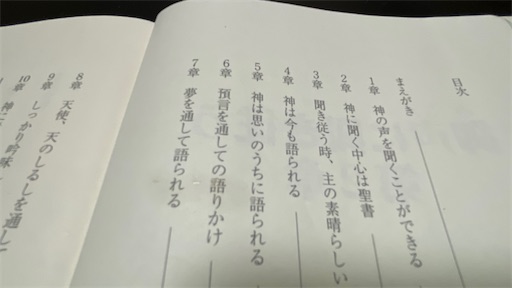 目次
まえがき
1章 神の声を聞くことができる
2章 神に聞く中心は聖書
3章 聞き従う時、主の素晴らしい
4章 神は今も語られる
5章 神は思いのうちに語られる
6章 預言を通しての語りかけ
7章 夢を通して語られる
8章 天使、天のしるしを通して
9章 しっかり吟味
10章 神に